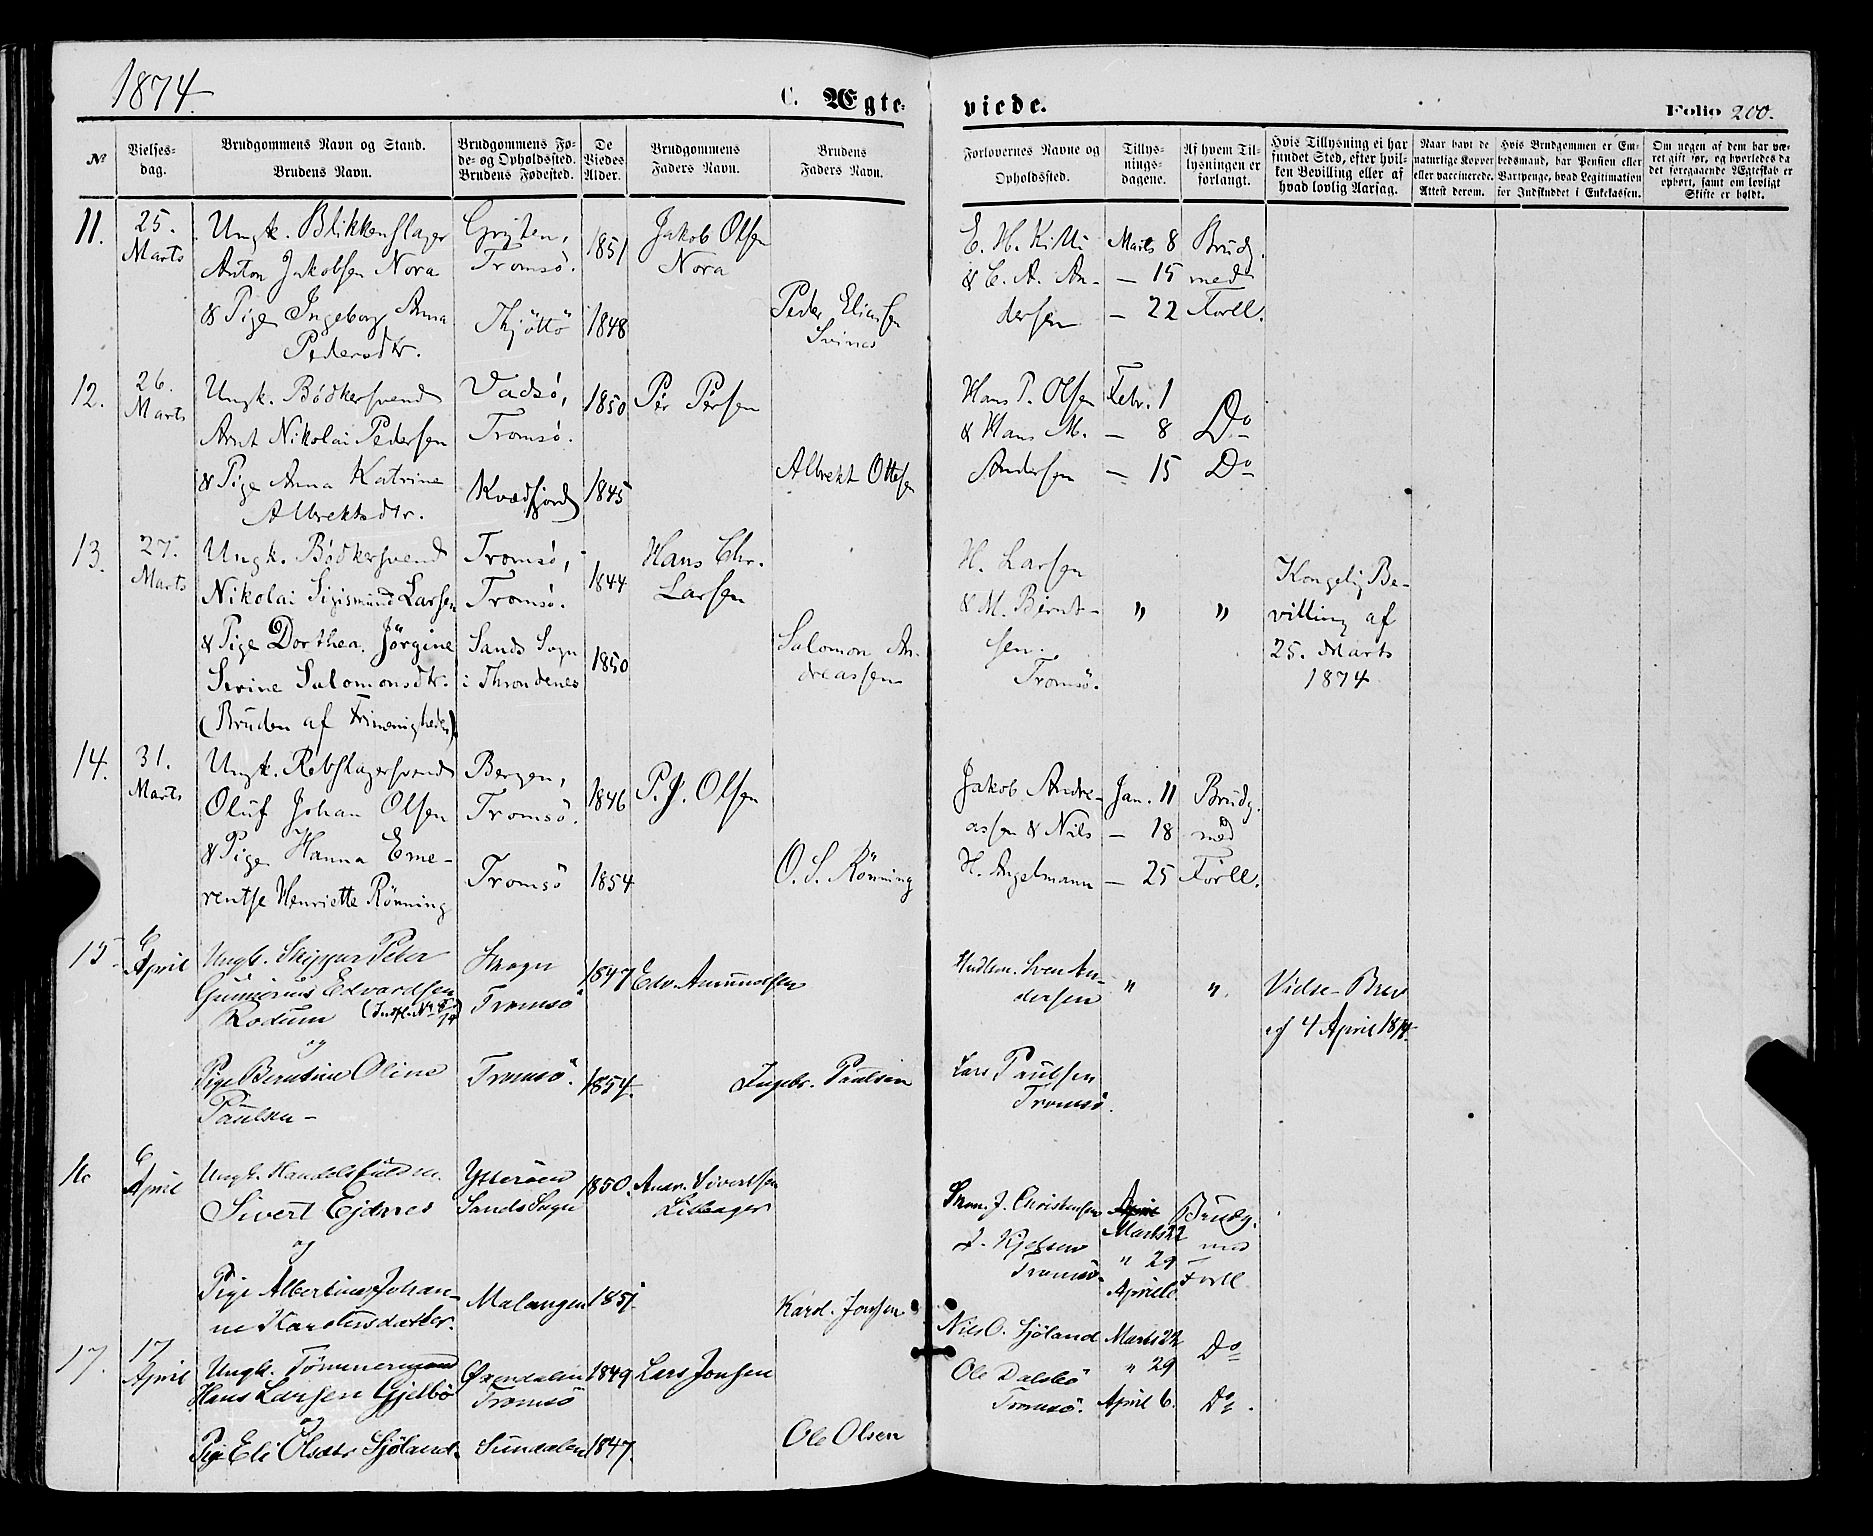 1874.
C. Ægte-
viede.
Folio 200.
№
Vielses-
dag.
Brudgommens Navn og Stand.
Brudens Navn.
Brudgommens Fø-
de- og Opholdssted.
Brudens Fødested.
De
Viedes
Alder.
Brudgommens
Faders Navn.
Brudens
Faders Navn.
Forlovernes Navne og
Opholdssted.
Tillys-
nings-
dagene.
Af hvem Til-
lysningen er
forlangt.
Hvis Tillysning ei har
fundet Sted, efter hvil-
ken Bevilling eller af
hvad lovlig Aarsag.
Naar havt de
naturlige Kopper
eller vaccinerede.
Attest derom.
Hvis Brudgommen er Em-
bedsmand, har Pension eller
Vartpenge, hvad Legitimation
for Indskuddet i Enkekassen.
Om nogen af dem har væ-
ret gift før, og hvorledes da
det foregaaende Ægteskab er
ophørt, samt om lovligt
Skifte er holdt.
11.
25.
Marts
Ungk. Blikkenslager
Anton Jakobsen Nora
& Pige Ingeborg Anna
Pedersdtr.
Tromsø.
Thjöttö
1851
1848
Jakob Olsen
Nora
Peder Eliassen
Svines
E. H. Kitti
& C. A. An-
dersen
Marts 8
— 15
— 22
Brudg.
med
Forll.
12.
26.
Marts
Ungk. Bödkersvend
Arnt Nikolai Pedersen
& Pige Anna Katrine
Albrektsdtr.
Vadsö,
Tromsö.
Kvædfjord
1850
1845
Per Persen
Albrekt Ottesen
Hans P. Olsen
& Hans M.
Andersen
Febr. 1
— 8
— 15
Do
Do
13.
27.
Marts
Ungk. Bödkersvend
Nikolai Sigismund Larsen
& Pige Dorthea Jörgine
Sevine Salomonsdtr.
(Bruden af Frimenigheden).
Tromsö,
Tromsö.
Sands Sogn
i Throndenes
1844
1850
Hans Chr.
Larsen
Salomon An-
dreassen
H. Larsen
& M. Bernt-
sen.
Tromsö.
"
"
Kongelig Be-
villing af
25. Marts
1874
14.
31.
Marts
Ungk. Rebslagersvend
Oluf Johan Olsen
& Pige Hanna Eme-
rentse Henriette Rönning
Bergen,
Tromsö.
Tromsö
1846
1854
P. J. Olsen
O. S. Rönning
Jakob Andre-
assen & Nils
H. Angelmann
Jan. 11
— 18
— 25
Brudg.
med
Forll.
15
6
April
Ungk. Skipper Peter
Gunnerius Edvardsen
Rodum
og
Pige Berntine Oline
Paulsen -
Skogn
Tromsö
Tromsö.
1847
1854.
Edv. Amundsen
Ingebr. Paulsen
Sven An-
dersen
Lars Paulsen
Tromsö.
"
"
Vielse-Brev
af 4 April 1874.
16
6
April
Ungk. Handelsfuldm.
Sivert Ejdnes
og
Pige Albertine Johan-
ne Karolusdatter.
Ytterøen
Sands Sogn
Malangen
1850.
1851
Andr. Sivertsen
Karol. Jonssen
J. Christensen
Tromsö.
Marts 22
" 29
April 6
Brudg.
med
Forll.
17.
17
April
Ungk. Tømmermand
Hans Larsen Gjelbö
og
Pige Eli Olsdtr Sjöland.
Tromsö
Sundalen
1849
1847.
Lars Jonsen
Ole Olsen
Nils O. Sjöland
Ole Dalsbö
Tromsö.
Marts 22
" 29
April 6.
Do
Do.